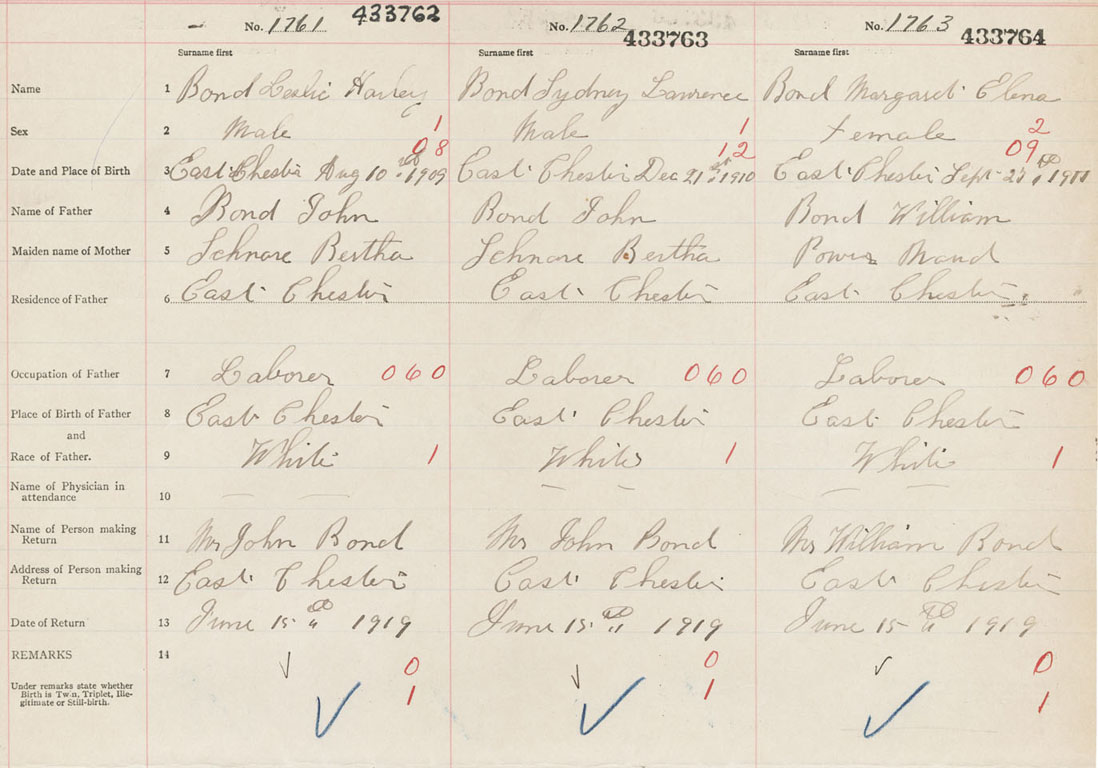 No. 1761 433762 No. 1762 433763 No. 1763 433764
Surname first Surname first Surname first
Name 1 Bond Leslie Harley Bond Sydney Lawrence Bond Margaret Elena
Sex 2 Male 1 Male 1 Female 2
08 12 09
Date and Place of Birth 3 East Chester Aug 10 1909 East Chester Dec 21st 1910 East Chester Sept 1911
Name of Father 4 Bond John Bond John Bond William
Maiden name of Mother 5 Schnare Bertha Schnare Bertha Power Maud
Residence of Father 6 East Chester East Chester East Chester
Occupation of Father 7 Laborer 060 Laborer 060 Laborer 060
Place of Birth of Father 8 East Chester East Chester East Chester
and
Race of Father. 9 White 1 White 1 White 1
Name of Physician in
attendance 10
Name of Person making
Return 11 Mrs John Bond Mrs John Bond Mrs William Bond
Address of Person making
Return 12 East Chester East Chester East Chester
Date of Return 13 June 15th 1919 June 15th 1919 June 15th 1919
REMARKS 14 0 0 0
Under remarks state whether
Birth is Twin, Triplet, Ille-
gitimate or Still-birth. 1 1 1